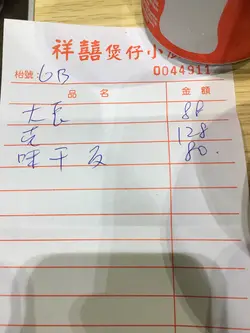 祥囍煲仔小
枱號: 6B 0044911
品名 金額
大長 88
克 128
味干反 80.